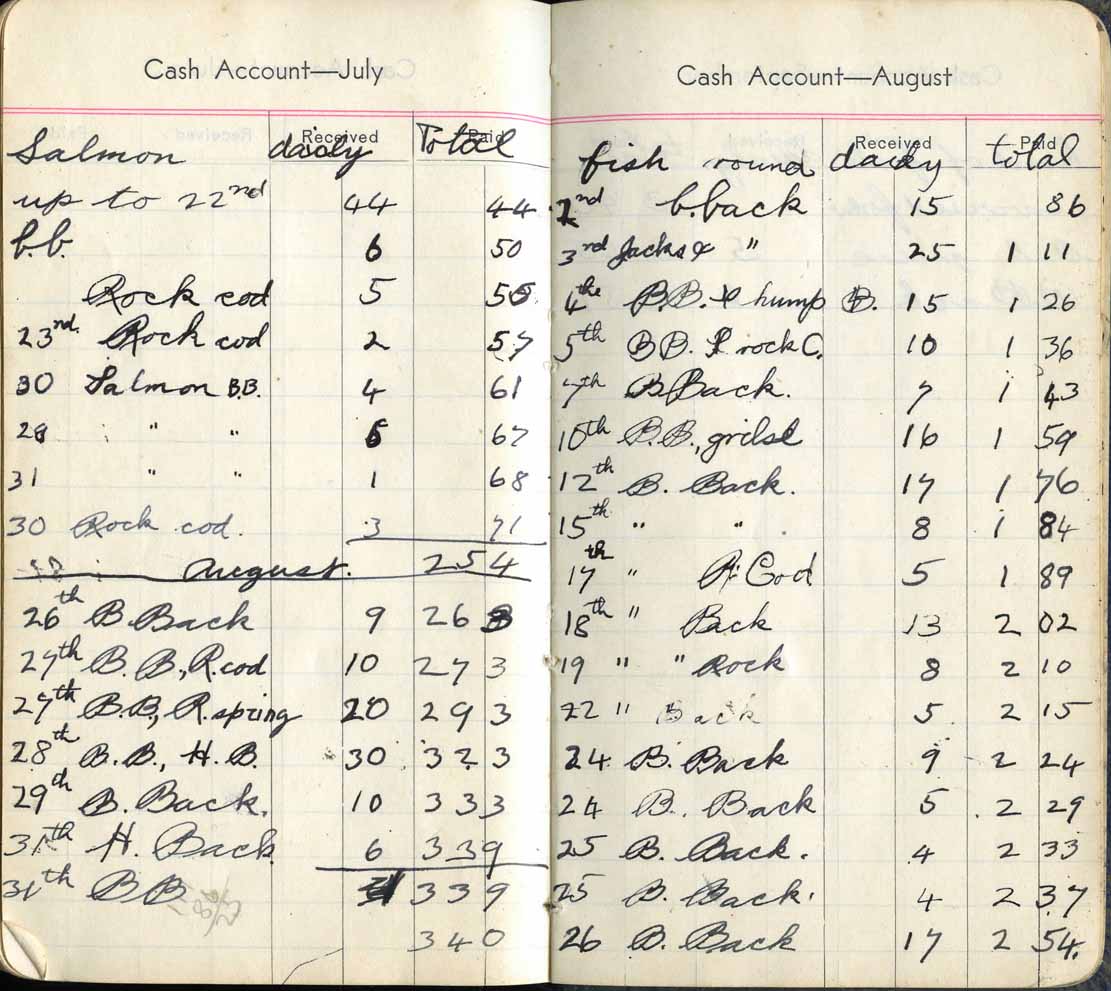 Cash Account—July
Received Paid
Salmon daily Total
up to 22nd 44 44
b.b. 6 50
Rock cod 5 55
23rd. Rock cod 2 57
30 Salmon B.B. 4 61
28 " " 6 67
31 " " 1 68
30 Rock cod. 3 71
August. 254
26th B. Back 9 263
27th B. B., R. cod 10 273
27th B.B., R. spring 20 293
28th B. B., H. B. 30 323
29th B. Back. 10 333
31th H. Back 6 339
31th BB 339
340
Cash Account—August
Received Paid
fish round daily total
2nd b.back 15 86
3rd Jacks & " 25 1 11
4the B.B. & hump B. 15 1 26
5th BB. & rock C. 10 1 36
7th B Back. 7 1 43
10th B.B., grilse 16 1 59
12th B. Back. 17 1 76
15th " " . 8 1 84
17th " R. Cod 5 1 89
18th " Back 13 2 02
19 " " Rock 8 2 10
22 " Back 5 2 15
24 B. Back 9 2 24
24 B. Back 5 2 29
25 B. Back. 4 2 33
25 B. Back. 4 2 37
26 B. Back 17 2 54.